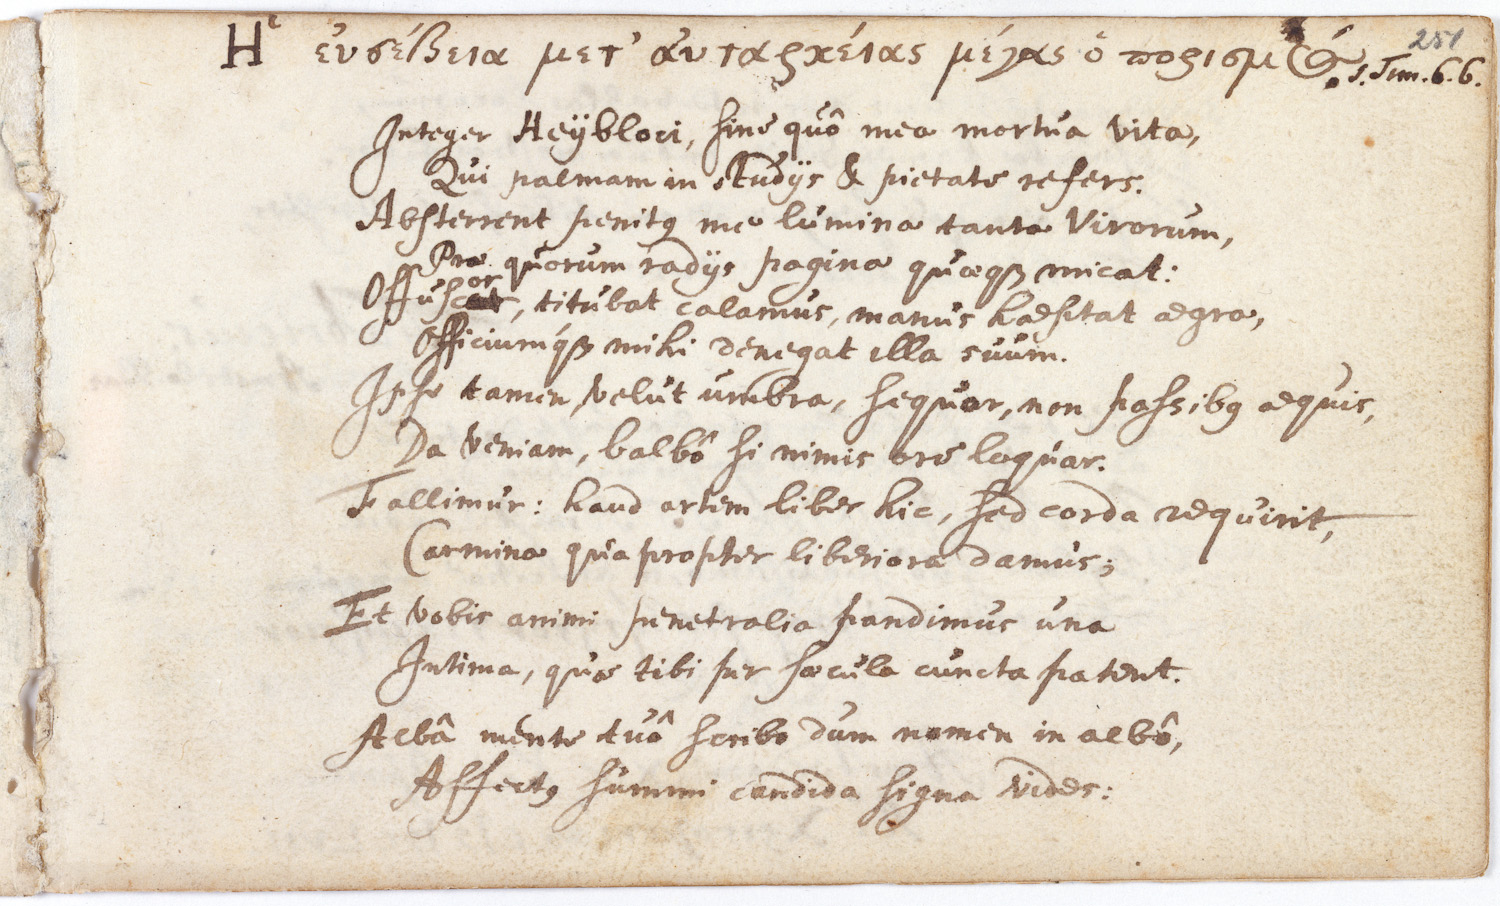 251
Ἡ ἐυσέβεια μετ' ἀυταρκέιας μέγας ὁ πορισμός. 1. Tim. 6. 6.
Integer Heÿbloci, sine quô mea mortua vita,
Qui palmam in studijs & pietate refers.
Absterrent penitꝰ me lumina tanta Virorum,
Præ quorum radijs pagina quæqꝫ micat:
Offuscor, titubat calamus, manus hæsitat ægra,
Officiumqꝫ mihi denegat illa suum.
Ipse tamen, velut umbra, sequar, non passibꝰ æquis,
Da veniam, balbô si nimis ore loquar.
Fallimur: haud artem liber hic, sed corda requirit,
Carmina quapropter liberiora damus;
Et vobis animi penetralia pandimus una
Intima, quæ tibi per sæcula cuncta patent.
Albâ mente tuô scribo dum nomen in albô,
Affectꝰ summi candida signa vides: